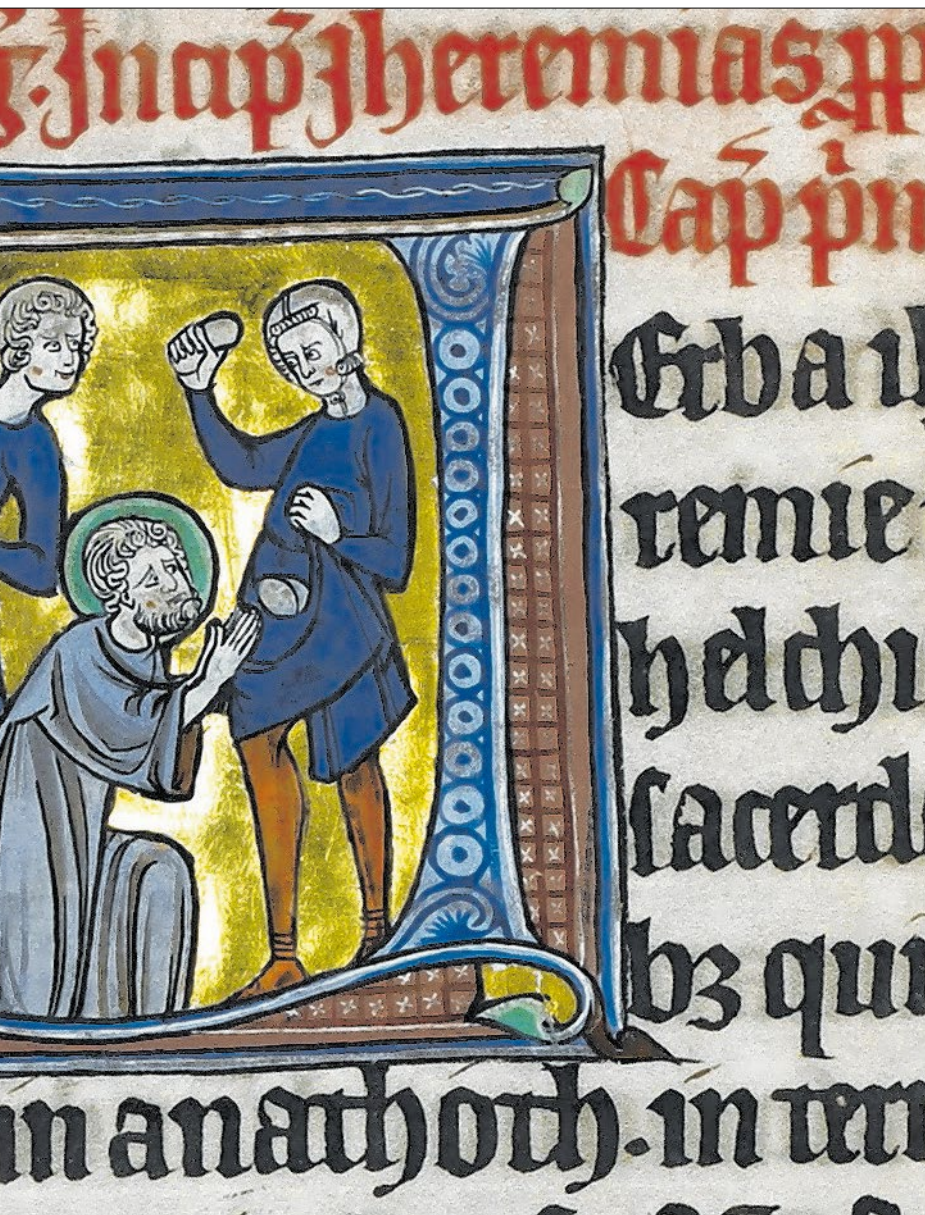 Incip̄ Jheremias
Cap̄ p̄m
Erba ih
remie
helchi
sacerdo
bꝫ qui
in anathoth. in terr